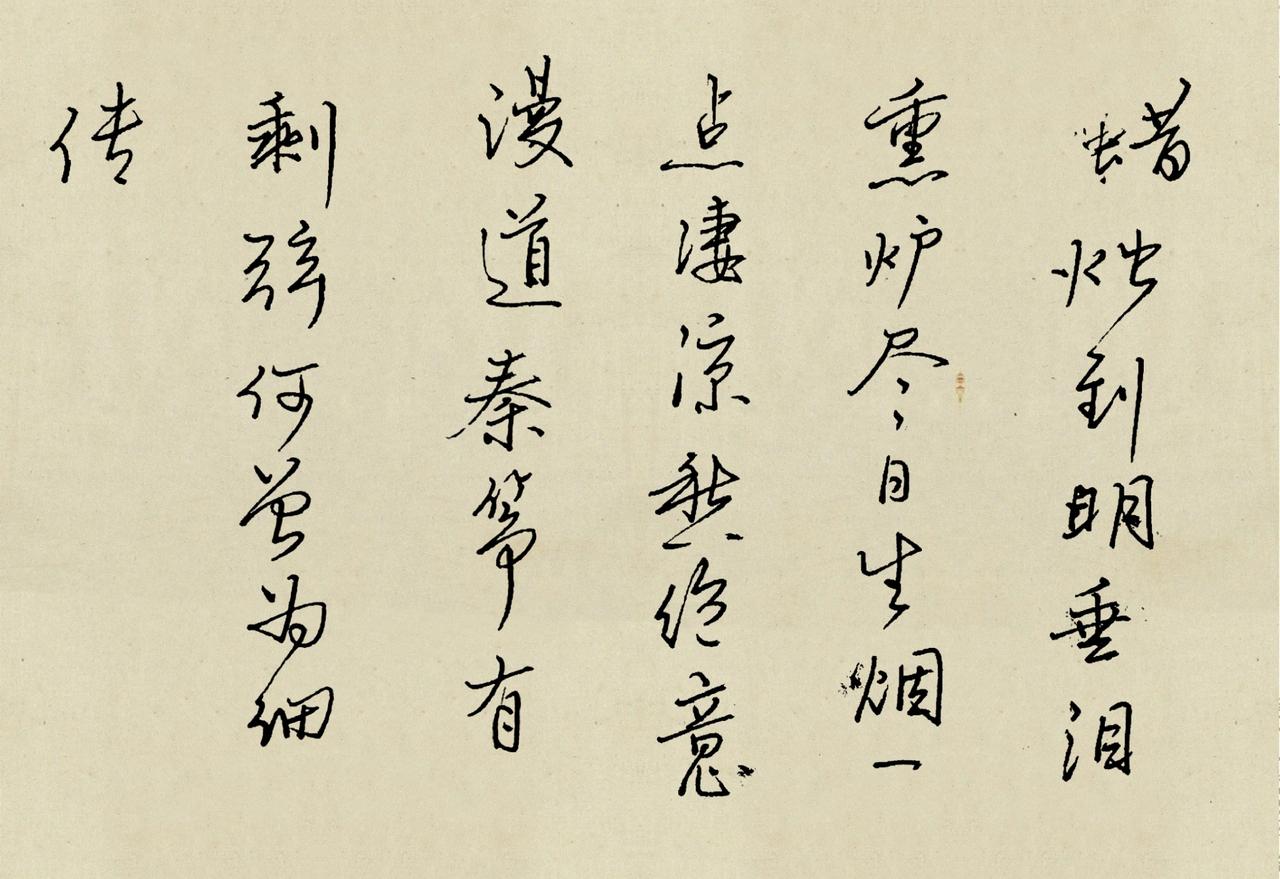 蜡烛到明垂泪
熏炉尽日生烟一
点凄凉愁绝意
漫道秦筝有
剩弦何曾为细
传